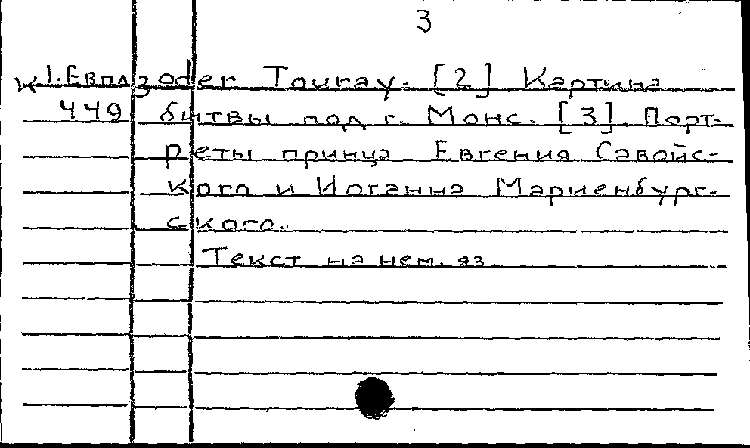 3
К 1. Евпаз oder Touray. [2] Картина
449 битвы под г. Монс. [3] Порт-
реты принца Евгения Савойс-
кого и Иоганна Мариенбург-
ского.
Текст на нем. яз